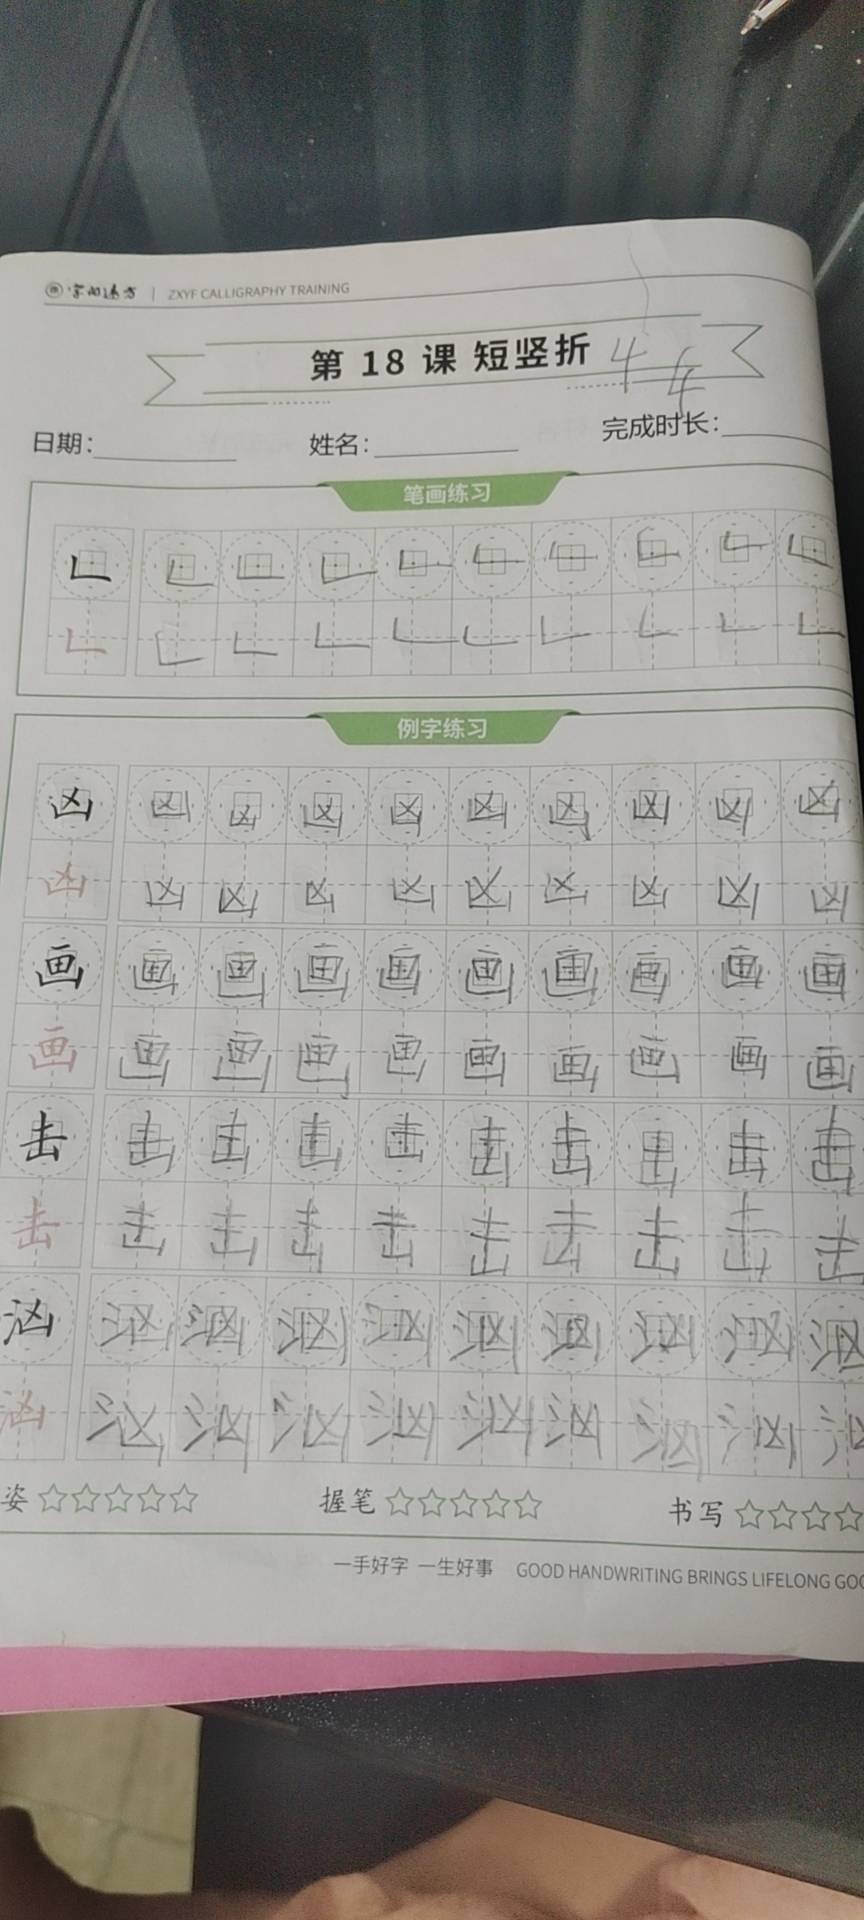 字向远方 | ZXYF CALLIGRAPHY TRAINING
第 18 课 短竖折 4 4
日期: 姓名: 完成时长:
笔画练习
例字练习
凶 凶 凶 凶 凶 凶 凶 凶 凶 凶
凶 凶 凶 凶 凶 凶 凶 凶 凶 凶
画 画 画 画 画 画 画 画 画 画
画 画 画 画 画 画 画 画 画 画
击 击 击 击 击 击 击 击 击 击
击 击 击 击 击 击 击 击 击 击
汹 汹 汹 汹 汹 汹 汹 汹 汹 汹
汹 汹 汹 汹 汹 汹 汹 汹 汹 汹
姿 ☆☆☆☆☆ 握笔 ☆☆☆☆☆ 书写 ☆☆☆☆
一手好字 一生好事 GOOD HANDWRITING BRINGS LIFELONG GOO